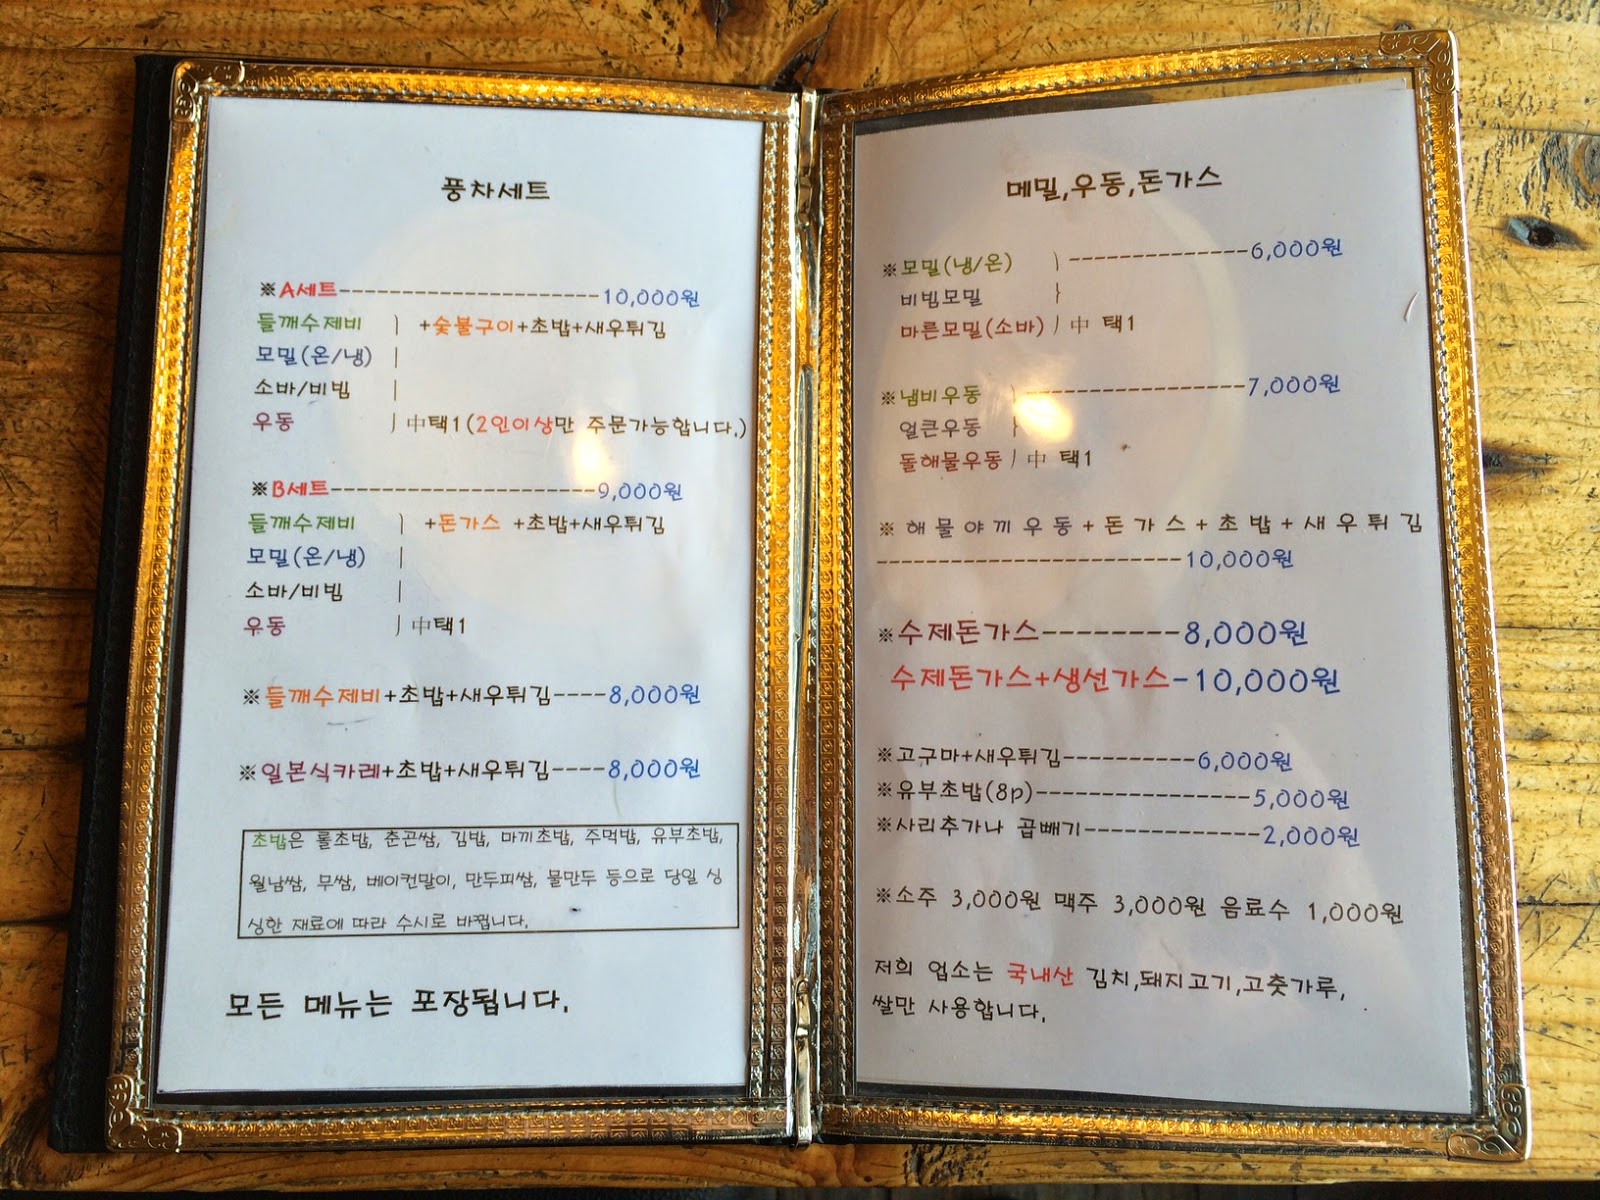 풍차세트
※A세트--------------------10,000원
들깨수제비 } +숯불구이+초밥+새우튀김
모밀(온/냉) |
소바/비빔 |
우동 ⌡中택1(2인이상만 주문가능합니다.)
※B세트--------------------9,000원
들깨수제비 } +돈가스 +초밥+새우튀김
모밀(온/냉) |
소바/비빔 |
우동 ⌡中택1
※들깨수제비+초밥+새우튀김----8,000원
※일본식카레+초밥+새우튀김----8,000원
초밥은 롤초밥, 춘곤쌈, 김밥, 마끼초밥, 주먹밥, 유부초밥,
월남쌈, 무쌈, 베이컨말이, 만두피쌈, 물만두 등으로 당일 싱
싱한 재료에 따라 수시로 바뀝니다.
모든 메뉴는 포장됩니다.
메밀,우동,돈가스
※모밀(냉/온) } --------------6,000원
비빔모밀 }
마른모밀(소바) ⌡中 택1
※냄비우동 }-----------------7,000원
얼큰우동 }
돌해물우동⌡中 택1
※ 해물야끼우동+돈가스+초밥+새우튀김
------------------------10,000원
※수제돈가스--------8,000원
수제돈가스+생선가스-10,000원
※고구마+새우튀김----------6,000원
※유부초밥(8p)-----------------5,000원
※사리추가나 곱빼기--------------2,000원
※소주 3,000원 맥주 3,000원 음료수 1,000원
저희 업소는 국내산 김치,돼지고기,고춧가루,
쌀만 사용합니다.